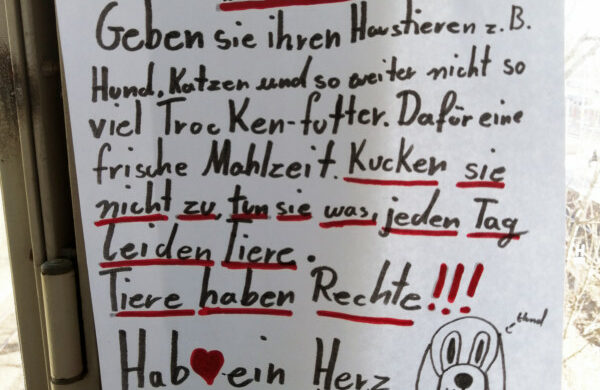 Geben sie ihren Haustieren z.B.
Hund, Katzen und so weiter nicht so
viel Trocken-futter. Dafür eine
frische Mahlzeit. Kucken sie
nicht zu, tun sie was, jeden Tag
leiden Tiere.
Tiere haben Rechte!!!
Hund
Hab ♥ ein Herz